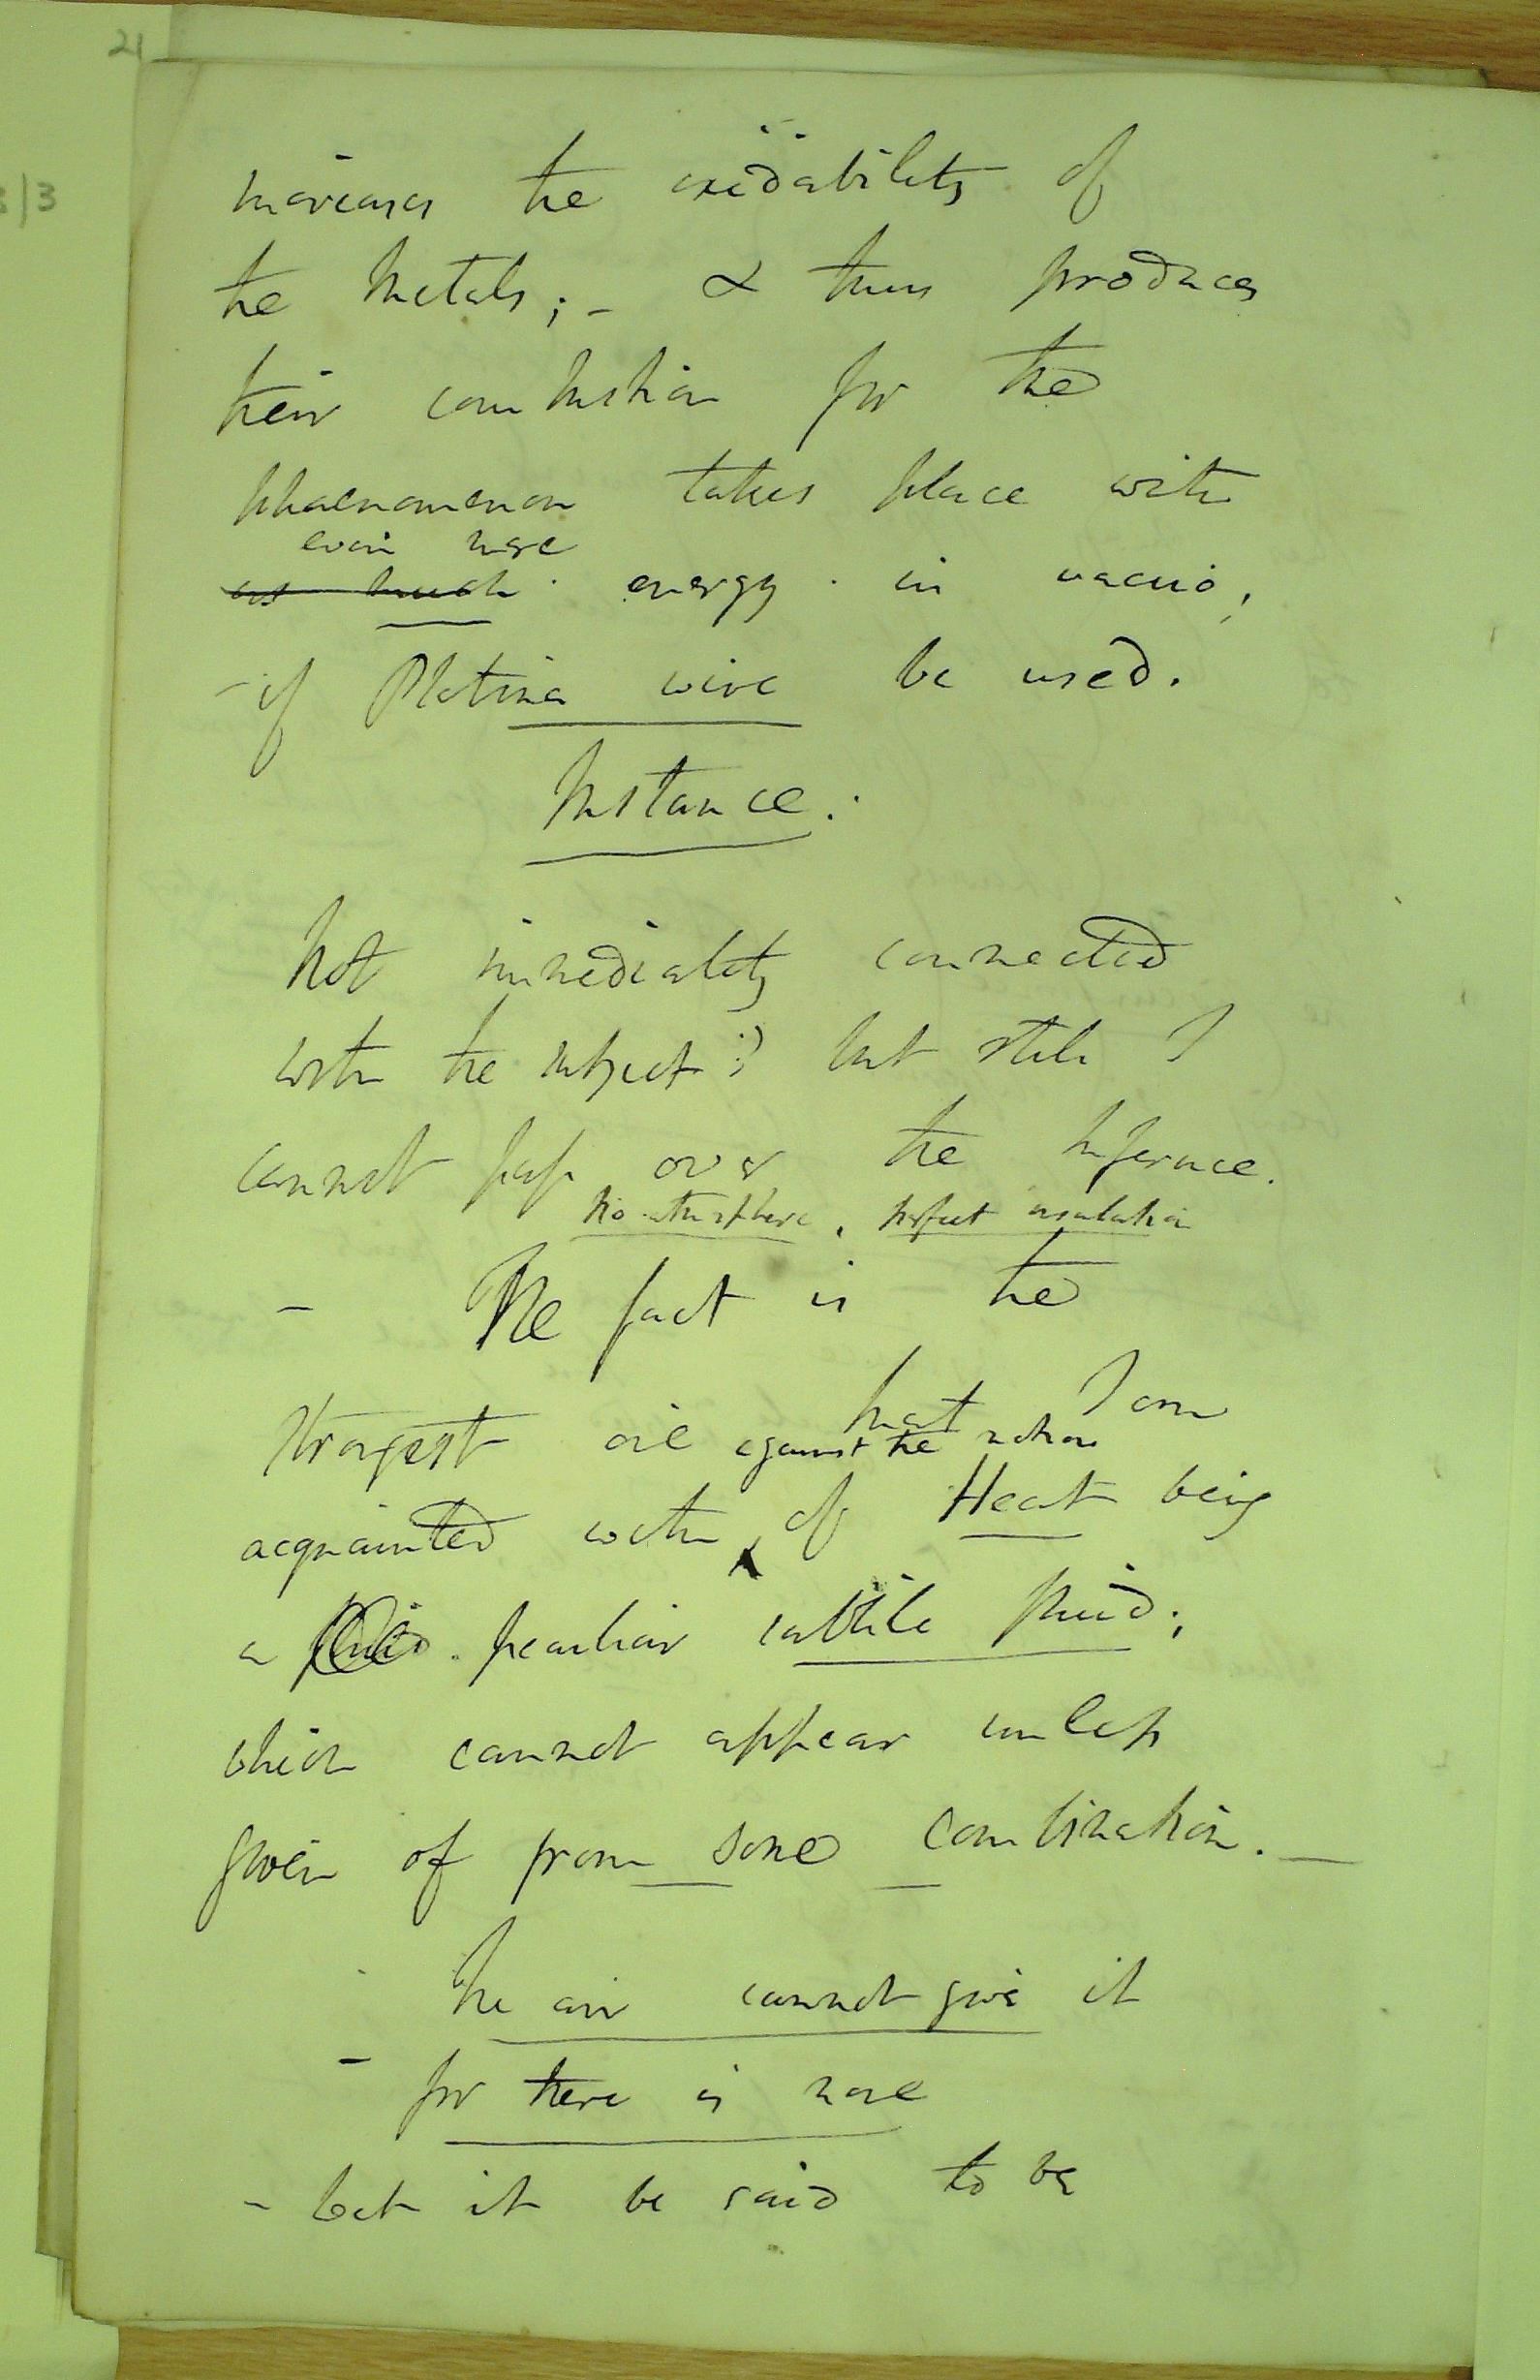 21
3/3
increases the oxidability of
the Metals; - & thus produces
their combustion for the
phaenomenon takes place with
even more
as much energy in vacuo,
- if Platina wire be used.
Instance.
Not immediately connected
with the subject; but still I
cannot pass over the Inference.
No atmosphere, perfect insulation
- The fact is the
strongest one that I am
against the notion
acquainted with of Heat being
a fluid peculiar subtile fluid;
which cannot appear unless
given of from some combination. -
The air cannot give it
- for there is none
- let it be said to be